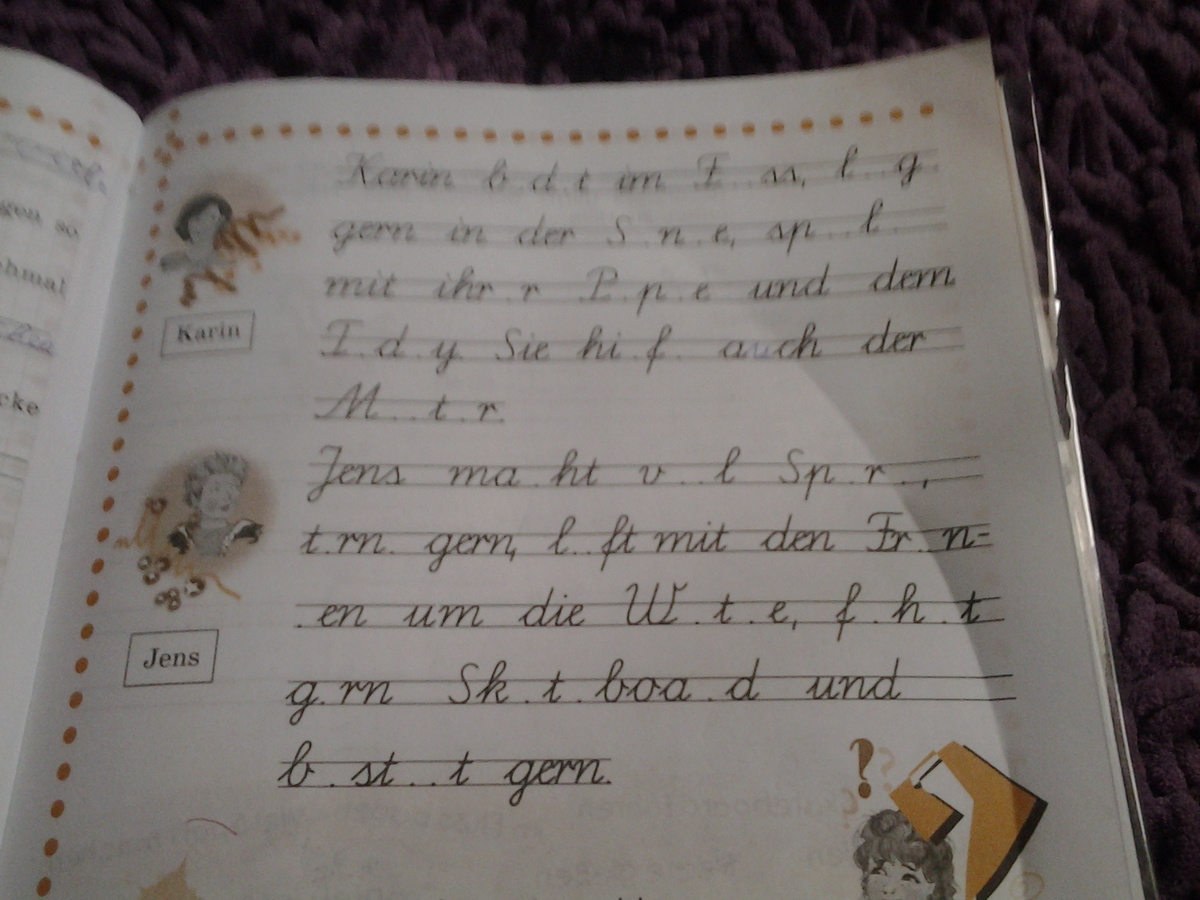 gen so
hmal
cke
Karin b.d.t im F..ss, l..g.
gern in der S.n.e, sp..l.
mit ihr.r P.p.e und dem
T.d.y. Sie hi.f. auch der
M..t.r.
Karin
Jens ma.ht v..l Sp.r.,
t.rn. gern, l..ft mit den Fr..n-
.en um die W.t.e, f.h.t
g.rn Sk.t.boa.d und
b.st..t gern.
Jens